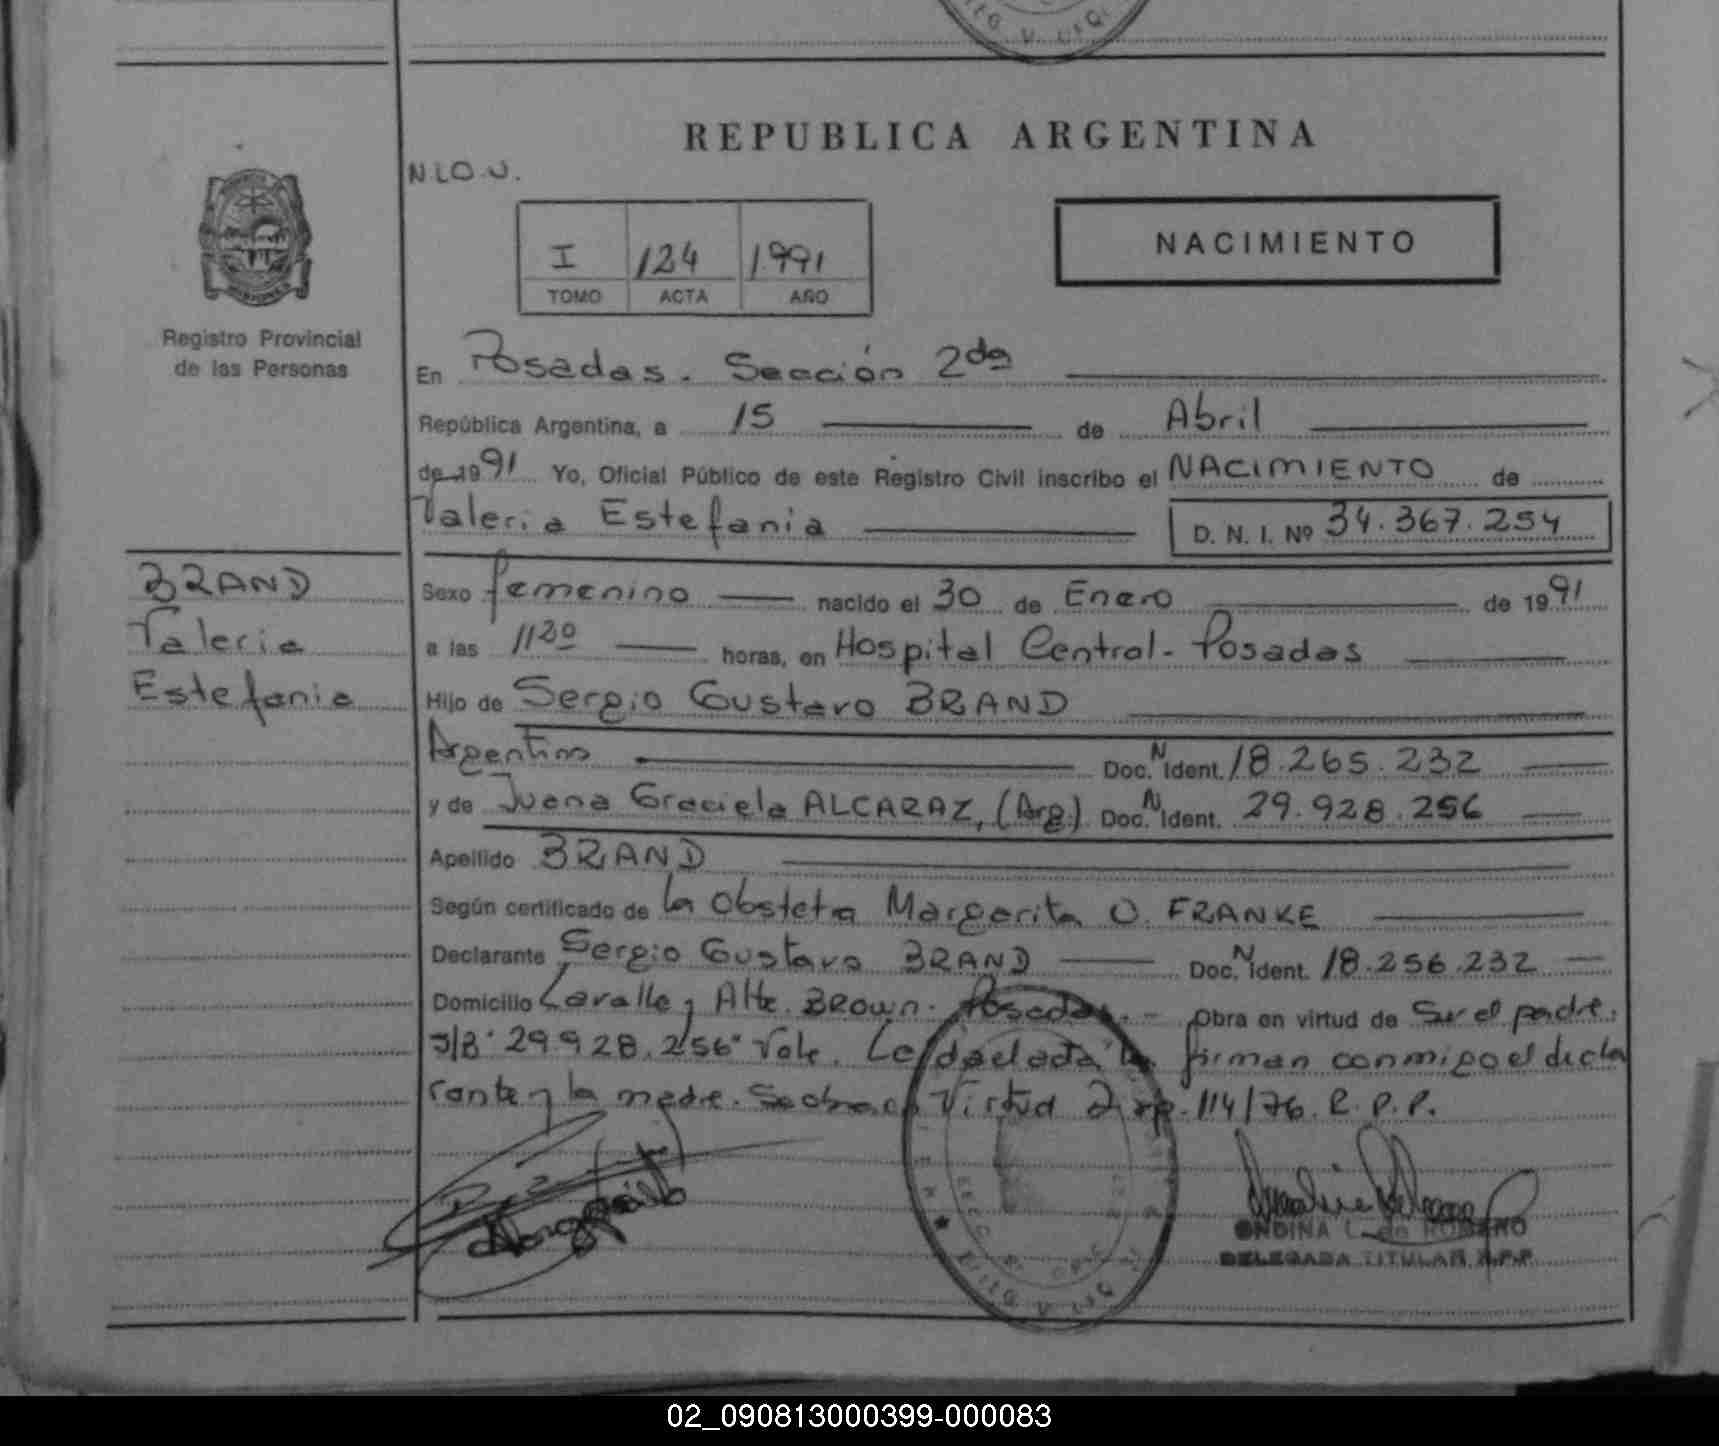 REPUBLICA ARGENTINA
N.I.O.U.
NACIMIENTO
I 124 1991
TOMO ACTA AÑO
Registro Provincial
de las Personas
En Posadas. Sección 2da
República Argentina, a 15 de Abril
de 1991 Yo, Oficial Público de este Registro Civil inscribo el NACIMIENTO de
Valeria Estefania D. N. I. Nº 34.367.254
BRAND
Valeria
Estefania
Sexo femenino nacido el 30 de Enero de 1991
a las 1130 horas, en Hospital Central - Posadas
Hijo de Sergio Gustavo BRAND
Argentino Doc. N Ident. 18.265.232
y de Juana Graciela ALCARAZ, (Arg.) Doc. N Ident. 29.928.256
Apellido BRAND
Según certificado de la Obstetra Margarita O. FRANKE
Declarante Sergio Gustavo BRAND Doc. N Ident. 18.256.232
Domicilio Lavalle y Alte. Brown. Posadas. - Obra en virtud de Ser el padre.
S/B "29.928.256" Vale. Leída el acta la firman conmigo el decla
rante y la madre. Se obra en Virtud Disp. 114/76. R. P. P.
ONDINA L. de ROMERO
DELEGADA TITULAR R.P.P.
02_090813000399-000083